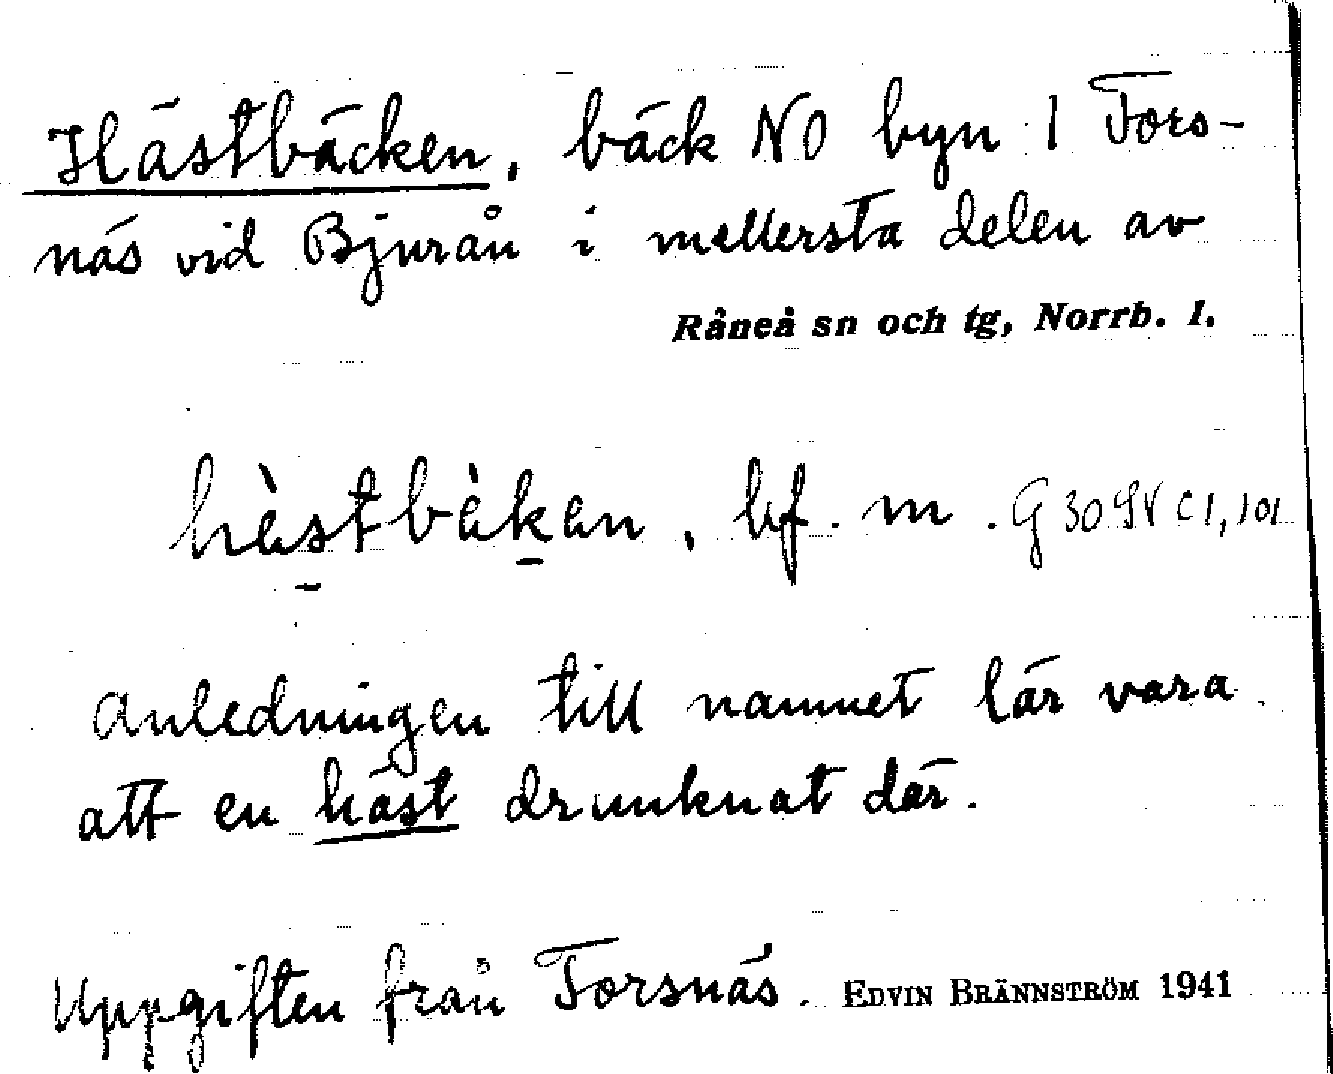 Hästbäcken, bäck NO byn 1 Fors-
näs vid Bjurån i mellersta delen av
Råneå sn och tg, Norrb. l.
hèstbèken, bf. m.
Anledningen till namnet lär vara
att en häst drunknat där.
Uppgiften från Forsnäs. EDVIN BRÄNNSTRÖM 1941